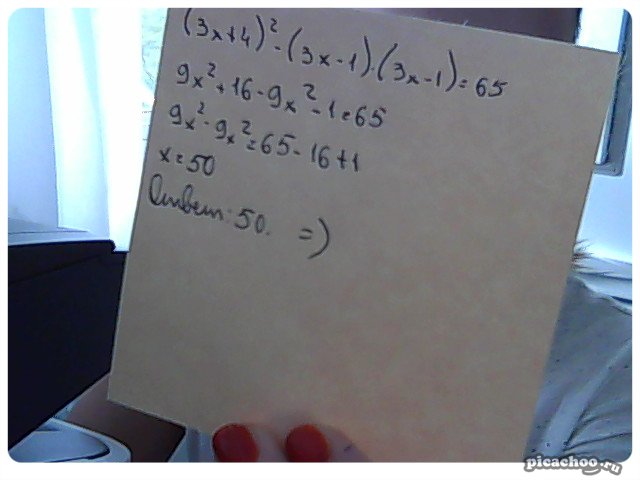 (3x+4)²-(3x-1)·(3x-1)=65
9x²+16-9x²-1=65
9x²-9x²=65-16+1
x=50
Ответ: 50. =)
picachoo.ru